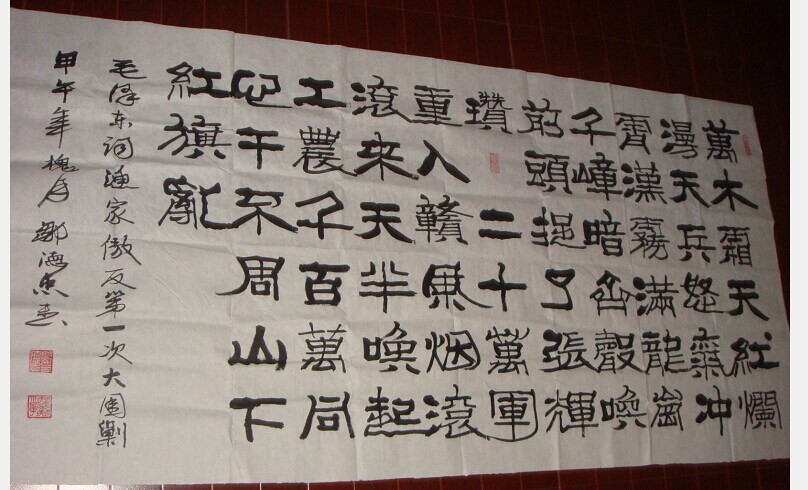 萬木霜天紅爛
漫天兵怒氣冲
霄漢霧滿龍崗
千嶂暗齊聲喚
前頭捉了張輝
瓚 二十萬軍
重入贛風烟滾
滾來天半喚起
工農千百萬同
心干不周山下
紅旗亂
毛泽东词渔家傲反第一次大围剿
甲午年 槐月 鄒海